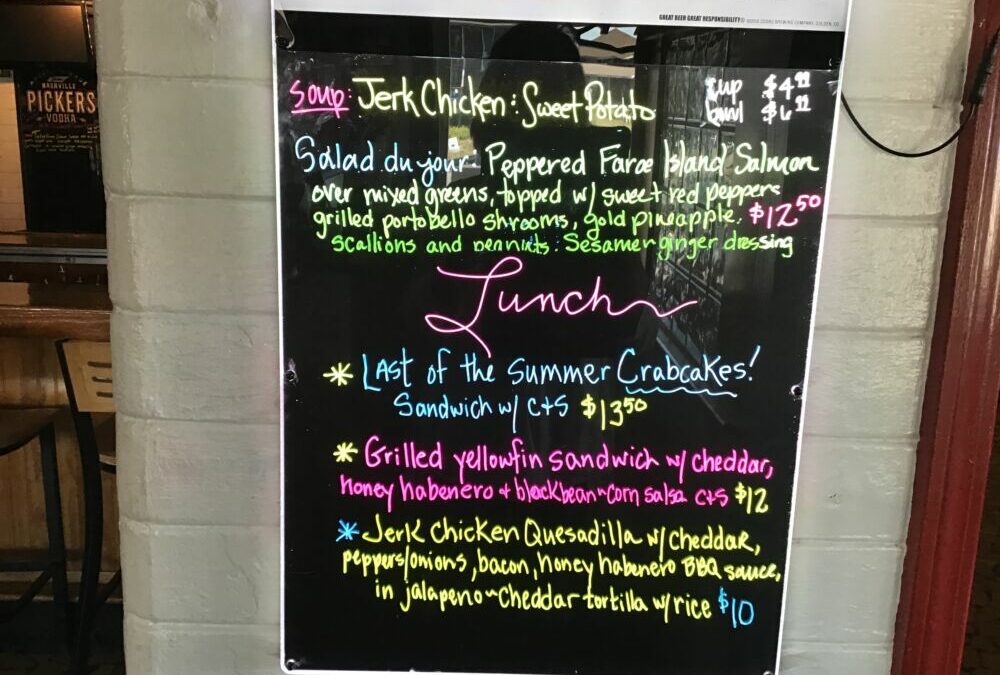 GREAT BEER GREAT RESPONSIBILITY®
NASHVILLE
PICKERS
VODKA
Soup: Jerk Chicken : Sweet Potato
cup $4.99
bowl $6.99
Salad du jour: Peppered Faroe Island Salmon
over mixed greens, topped w/ sweet red peppers
grilled portobello shrooms, gold pineapple, $12.50
scallions and peanuts. Sesame ginger dressing
Lunch
* Last of the Summer Crabcakes!
Sandwich w/ C+S $13.50
* Grilled yellowfin sandwich w/ cheddar,
honey habenero + blackbean~corn salsa C+S $12
* Jerk Chicken Quesadilla w/ cheddar,
peppers/onions, bacon, honey habenero BBQ sauce,
in jalapeno~cheddar tortilla w/ rice $10